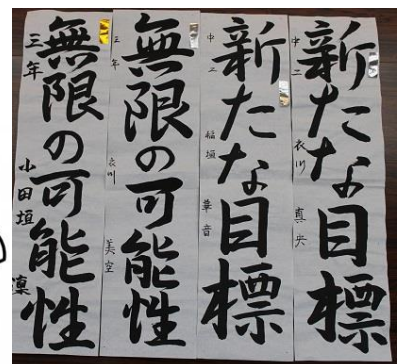 新たな目標
中二 衣川 真央
新たな目標
中二 稲垣 華音
無限の可能性
三年 衣川 美空
無限の可能性
三年 小田垣 凛